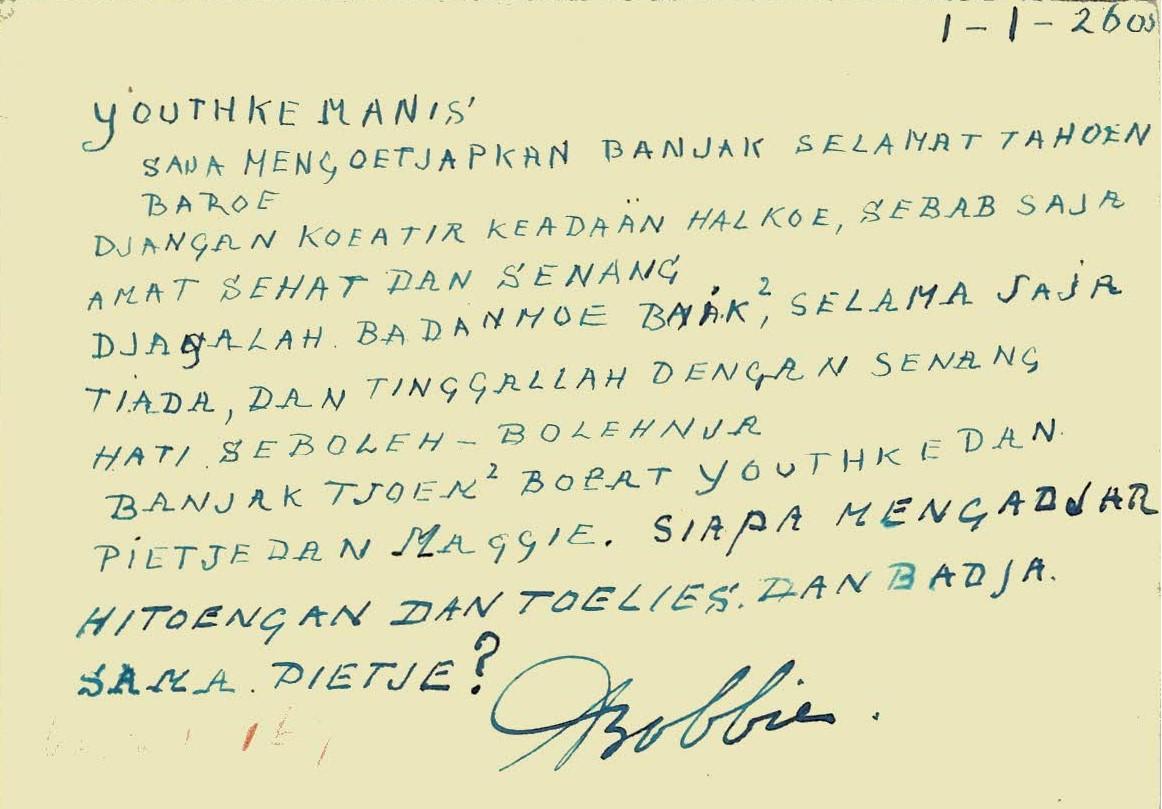 1-1-2603
YOUTHKE MANIS'
SAJA MENGOETJAPKAN BANJAK SELAMAT TAHOEN
BAROE
DJANGAN KOEATIR KEADAÄN HALKOE, SEBAB SAJA
AMAT SEHAT DAN SENANG
DJAGALAH. BADANMOE BAIK², SELAMA SAJA
TIADA, DAN TINGGALLAH DENGAN SENANG
HATI SEBOLEH-BOLEHNJA
BANJAK TJOEM² BOEAT YOUTHKE DAN
PIETJE DAN MAGGIE. SIAPA MENGADJAR
HITOENGAN DAN TOELIES. DAN BADJA.
SAMA. PIETJE?
Bobbie.